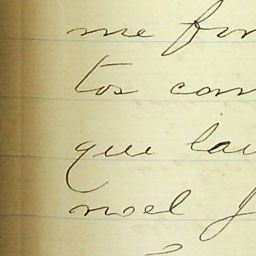 me for
tos con
que lau
noel J